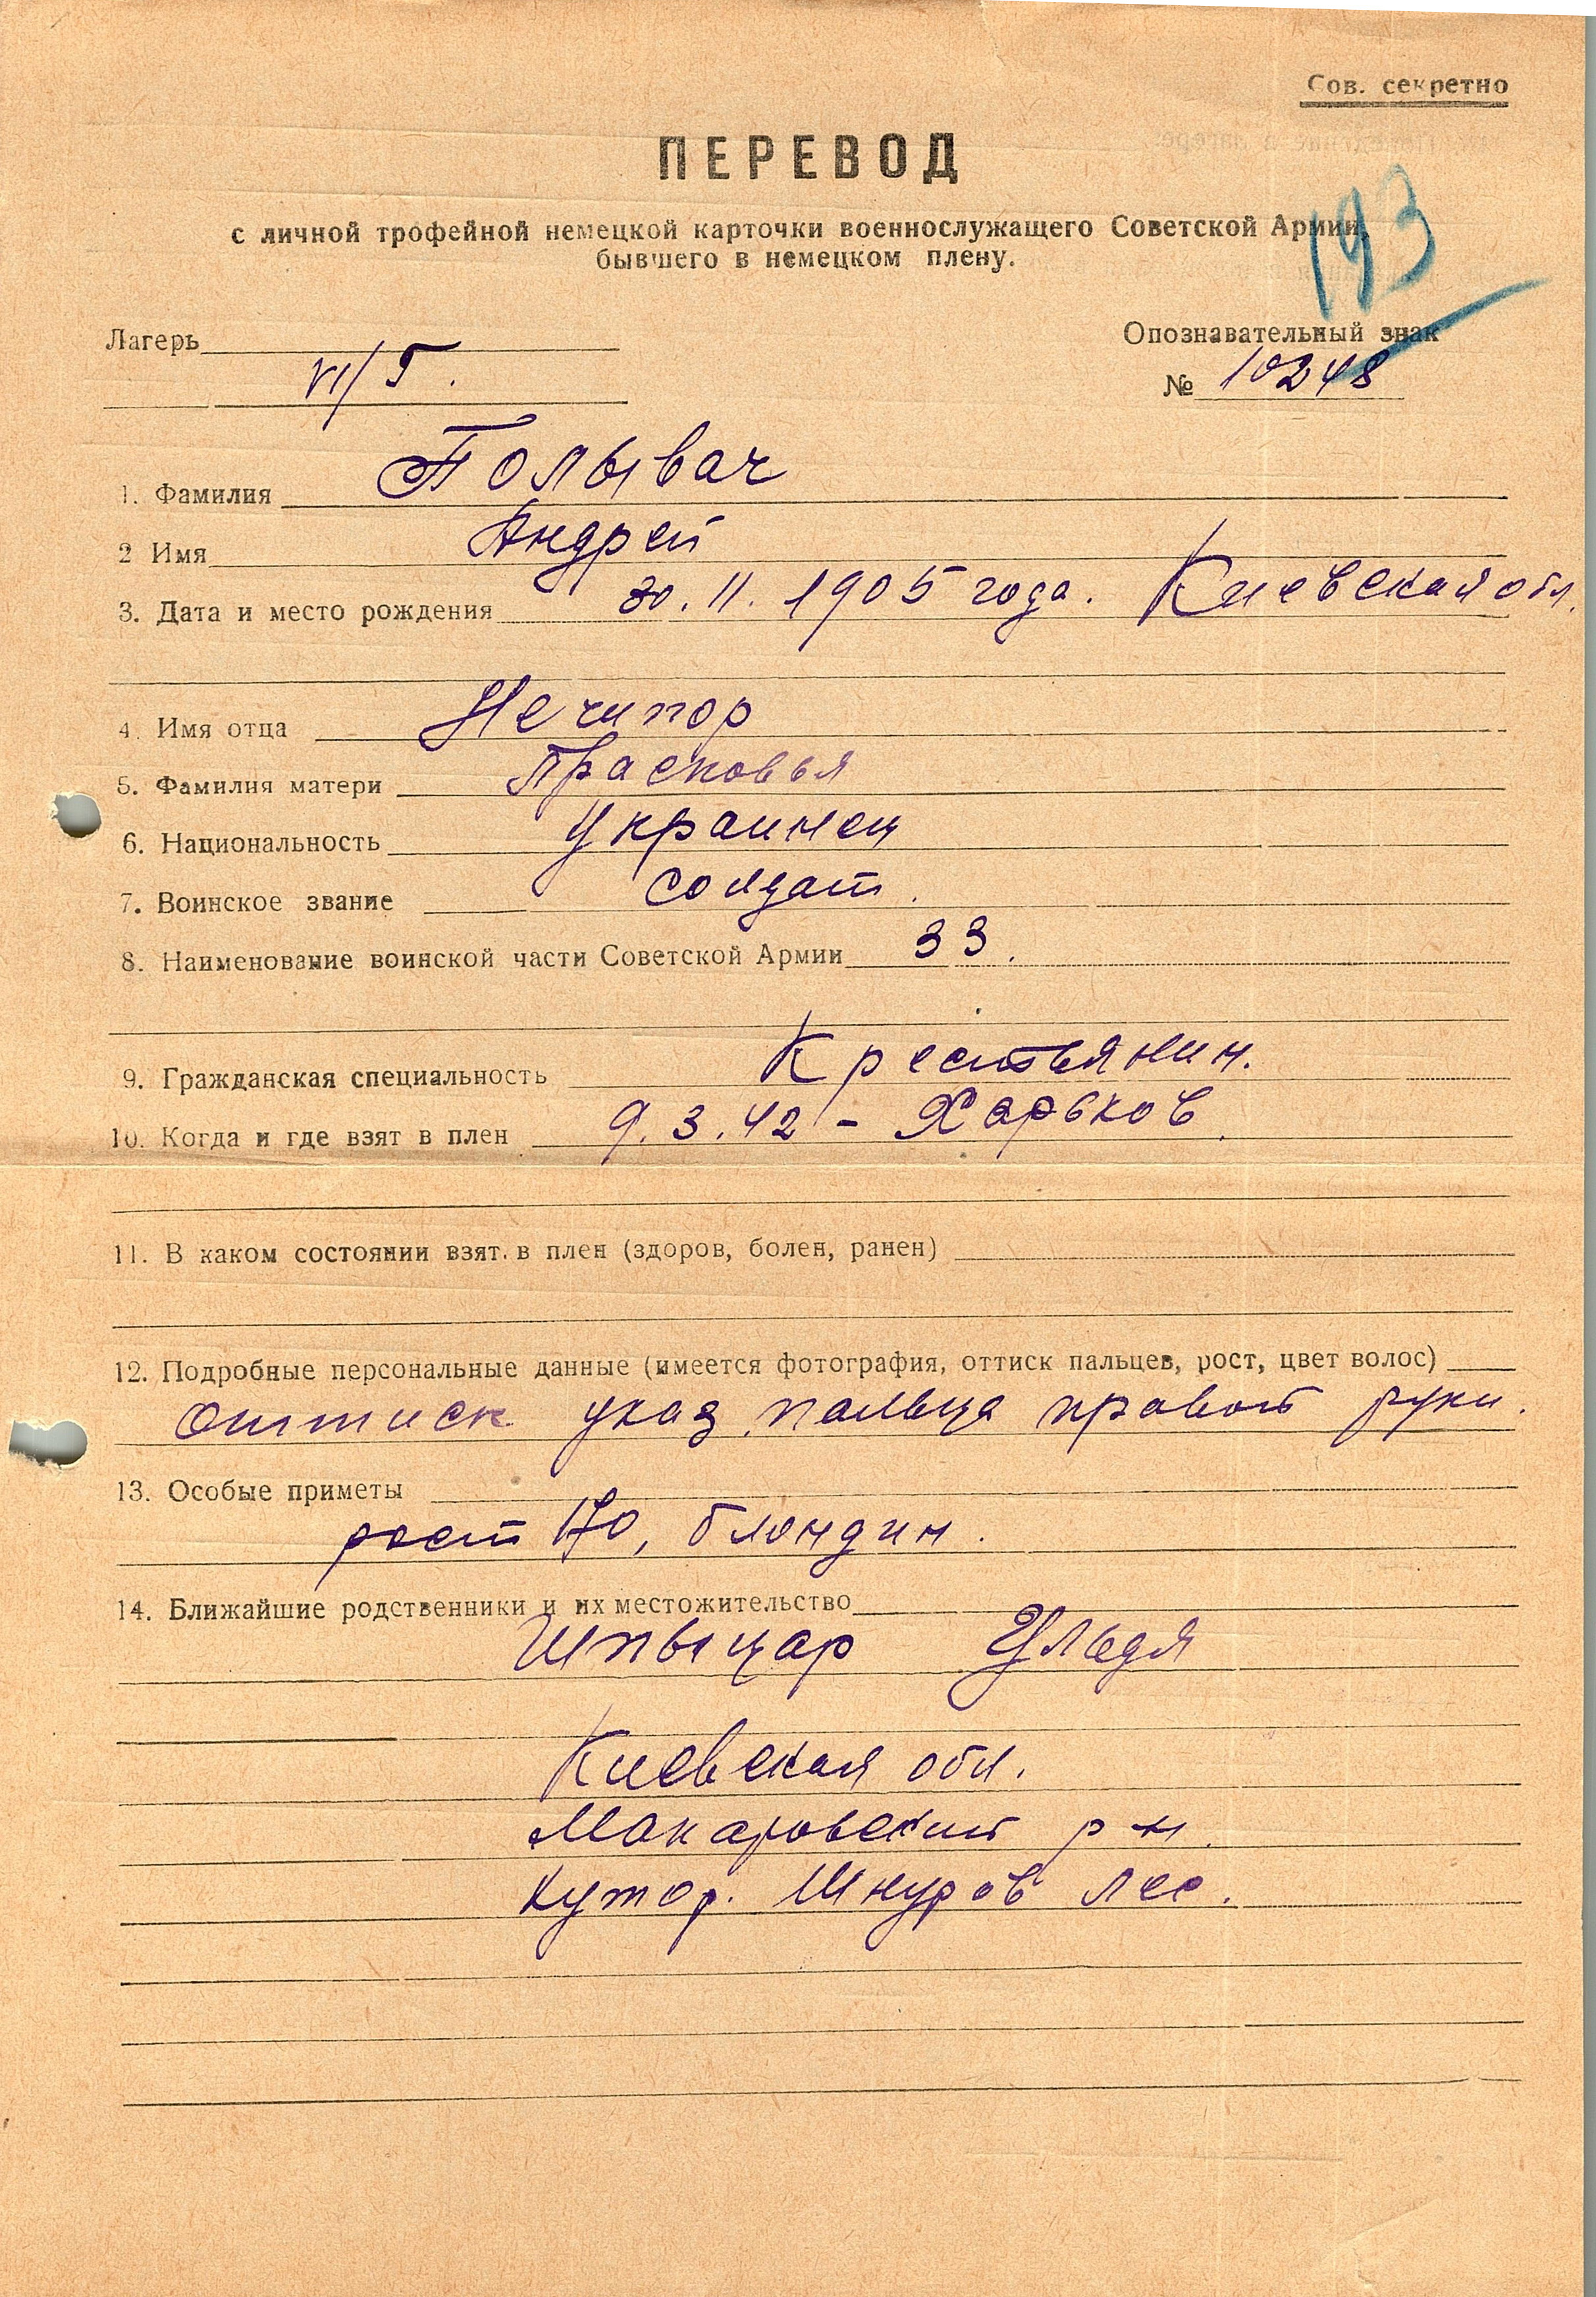 Сов. секретно
ПЕРЕВОД
193
с личной трофейной немецкой карточки военнослужащего Советской Армии,
бывшего в немецком плену.
Лагерь
VI/Г.
Опознавательный знак
№ 10248
1. Фамилия Полывач
2 Имя Андрей
3. Дата и место рождения 30.11.1905 года. Киевская обл.
4. Имя отца Нечипор
5. Фамилия матери Прасковья
6. Национальность Украинец
7. Воинское звание солдат.
8. Наименование воинской части Советской Армии 33.
9. Гражданская специальность Крестьянин.
10. Когда и где взят в плен 9.3.42 - Харьков.
11. В каком состоянии взят. в плен (здоров, болен, ранен)
12. Подробные персональные данные (имеется фотография, оттиск пальцев, рост, цвет волос)
Оттиск указ. пальца правой руки.
13. Особые приметы
рост 170, блондин.
14. Ближайшие родственники и их местожительство
Шпыцар
Киевская обл.
Макаровский р-н.
Хутор. Шнуров лес.